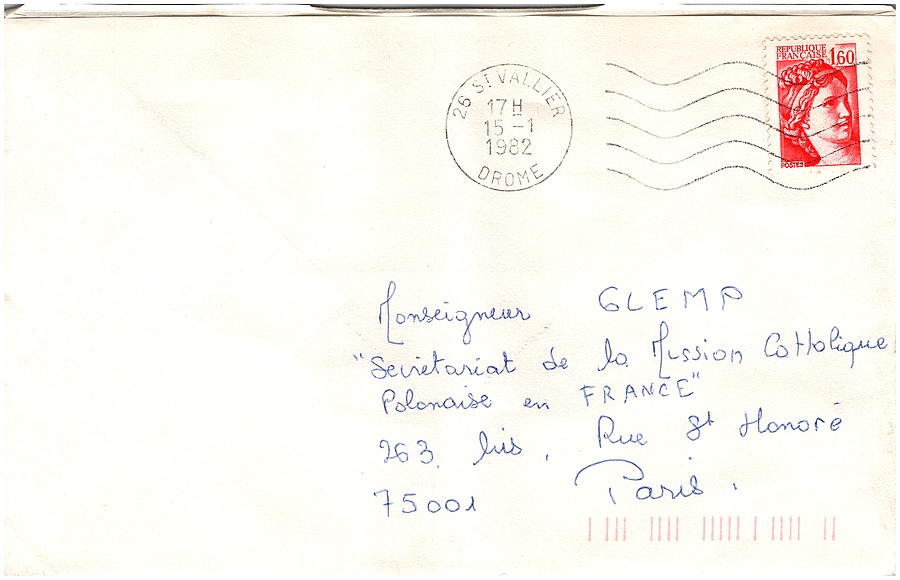 REPUBLIQUE
FRANÇAISE 1,60
POSTES
26 ST VALLIER
17H
15 -1
1982
DROME
Monseigneur GLEMP
"Secretariat de la Mission Catholique
Polonaise en FRANCE"
263 bis, Rue St Honoré
75001 Paris.